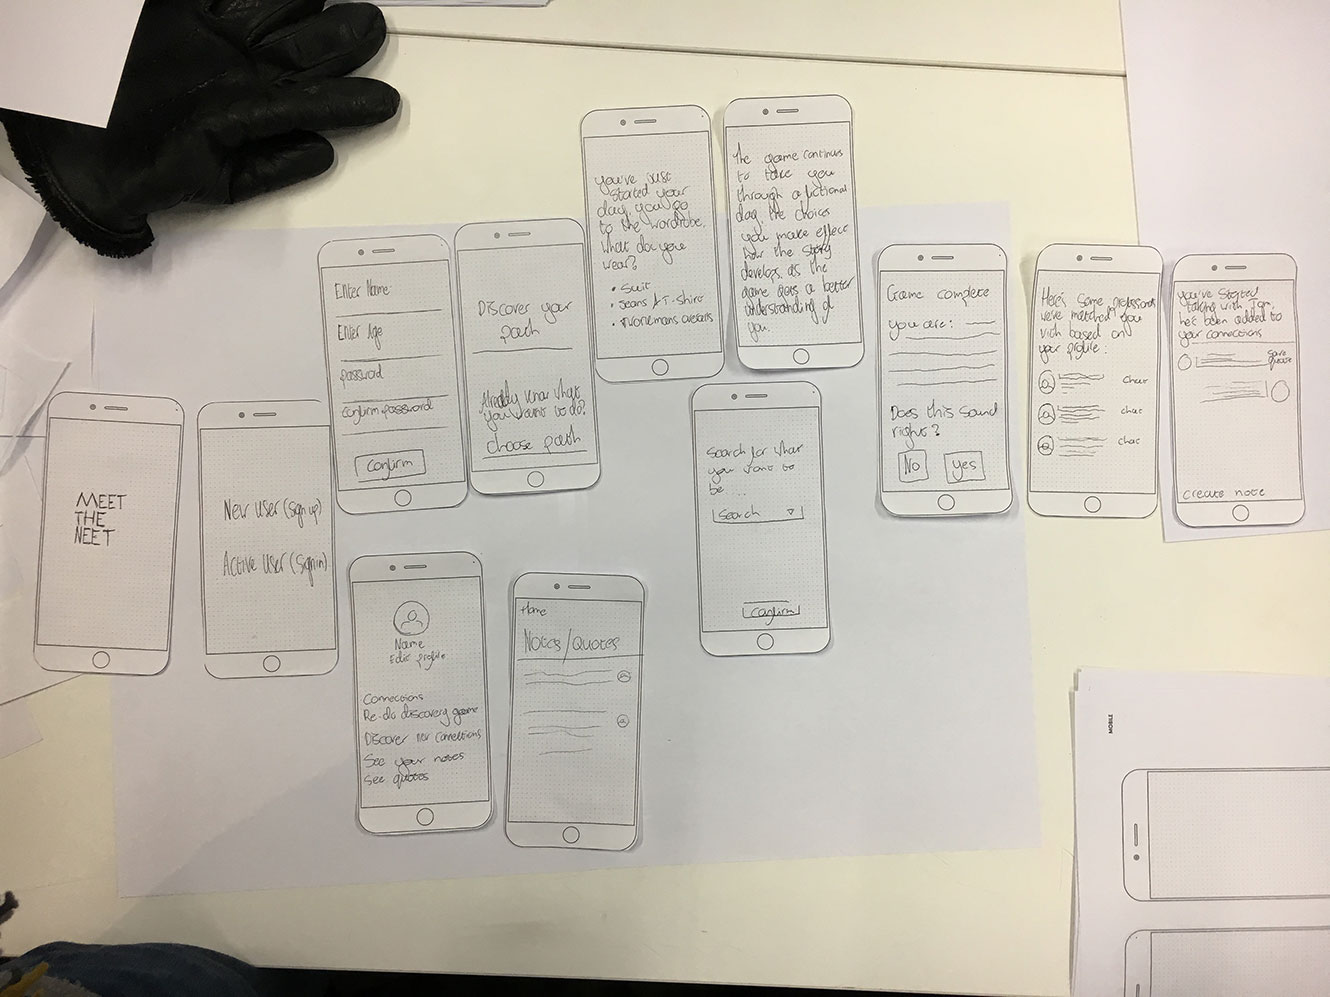 MEET
THE
NEET
New User (sign up)
Active User (Signin)
Enter Name
Enter Age
password
Confirm password
Confirm
Discover your
path
Already know what
you want to do?
choose path
you've just
started your
day, you go
to the wardrobe.
What do you
wear?
• Suit
• Jeans & T-shirt
• Workmans overalls
The game continues
to take you
through a fictional
day, the choices
you make effect
how the story
develops. as the
game gets a better
understanding of
you.
Search for what
you want to
be....
Search
Confirm
Game complete
you are:
Does this sound
right?
No
yes
Here's some professionals
we've matched you
with based on
your profile:
Chat
chat
chat
you've started
talking with Ian.
he's been added to
your connections
Save
quote
create note
Name
Edit profile
Connections
Re-do discovery game
Discover new connections
See your notes
See quotes
Home
Notes/Quotes
MOBILE